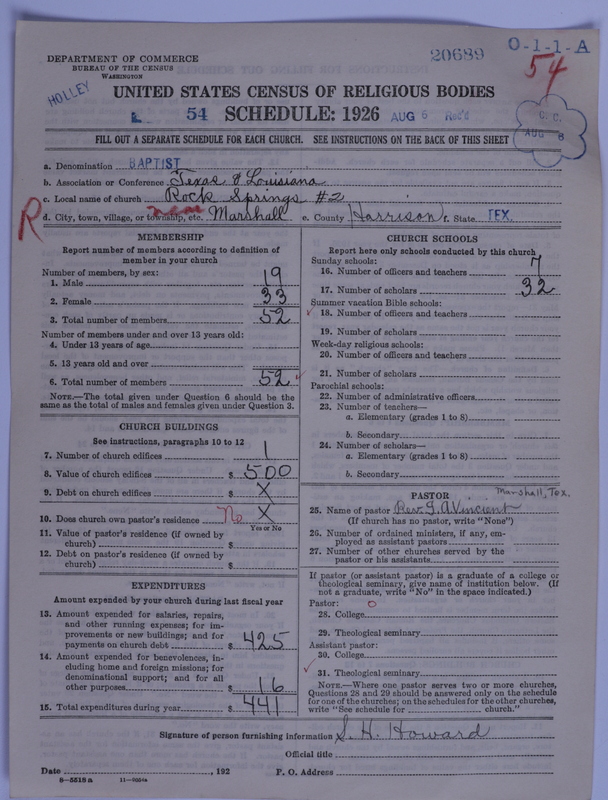 20689
O-1-1-A
54
DEPARTMENT OF COMMERCE
BUREAU OF THE CENSUS
WASHINGTON
HOLLEY
UNITED STATES CENSUS OF RELIGIOUS BODIES
54 SCHEDULE: 1926 AUG 6 Rec'd
C. C.
AUG 6
FILL OUT A SEPARATE SCHEDULE FOR EACH CHURCH. SEE INSTRUCTIONS ON THE BACK OF THIS SHEET
a. Denomination BAPTIST
b. Association or Conference Texas & Louisiana
c. Local name of church Rock Springs #2
R
d. City, town, village, or township, etc. near Marshall e. County Harrison f. State TEX.
MEMBERSHIP
Report number of members according to definition of
member in your church
Number of members, by sex:
1. Male 19
2. Female 33
3. Total number of members 52
Number of members under and over 13 years old:
4. Under 13 years of age
5. 13 years old and over
6. Total number of members 52 ✓
NOTE.—The total given under Question 6 should be the
same as the total of males and females given under Question 3.
CHURCH BUILDINGS
See instructions, paragraphs 10 to 12
7. Number of church edifices 1
8. Value of church edifices $ 500
9. Debt on church edifices $ X
10. Does church own pastor's residence No X
Yes or No
11. Value of pastor's residence (if owned by
church) $
12. Debt on pastor's residence (if owned by
church) $
EXPENDITURES
Amount expended by your church during last fiscal year
13. Amount expended for salaries, repairs,
and other running expenses; for im-
provements or new buildings; and for
payments on church debt $ 425
14. Amount expended for benevolences, in-
cluding home and foreign missions; for
denominational support; and for all
other purposes $ 16
15. Total expenditures during year $ 441
CHURCH SCHOOLS
Report here only schools conducted by this church
Sunday schools:
16. Number of officers and teachers 7
17. Number of scholars 32
Summer vacation Bible schools:
✓ 18. Number of officers and teachers
19. Number of scholars
Week-day religious schools:
20. Number of officers and teachers
21. Number of scholars
Parochial schools:
22. Number of administrative officers
23. Number of teachers—
a. Elementary (grades 1 to 8)
b. Secondary
24. Number of scholars—
a. Elementary (grades 1 to 8)
b. Secondary
PASTOR
Marshall, Tex.
25. Name of pastor Rev. G. A. Vincient
(If church has no pastor, write "None")
26. Number of ordained ministers, if any, em-
ployed as assistant pastors
27. Number of other churches served by the
pastor or his assistants
If pastor (or assistant pastor) is a graduate of a college or
theological seminary, give name of institution below. (If
not a graduate, write "No" in the space indicated.)
Pastor: O
28. College
29. Theological seminary
Assistant pastor:
30. College
✓ 31. Theological seminary
NOTE.—Where one pastor serves two or more churches,
Questions 28 and 29 should be answered only on the schedule
for one of the churches; on the schedules for the other churches,
write "See schedule for church."
Signature of person furnishing information S. H. Howard
Official title
Date , 192 P. O. Address
8-5518a 11-9024a